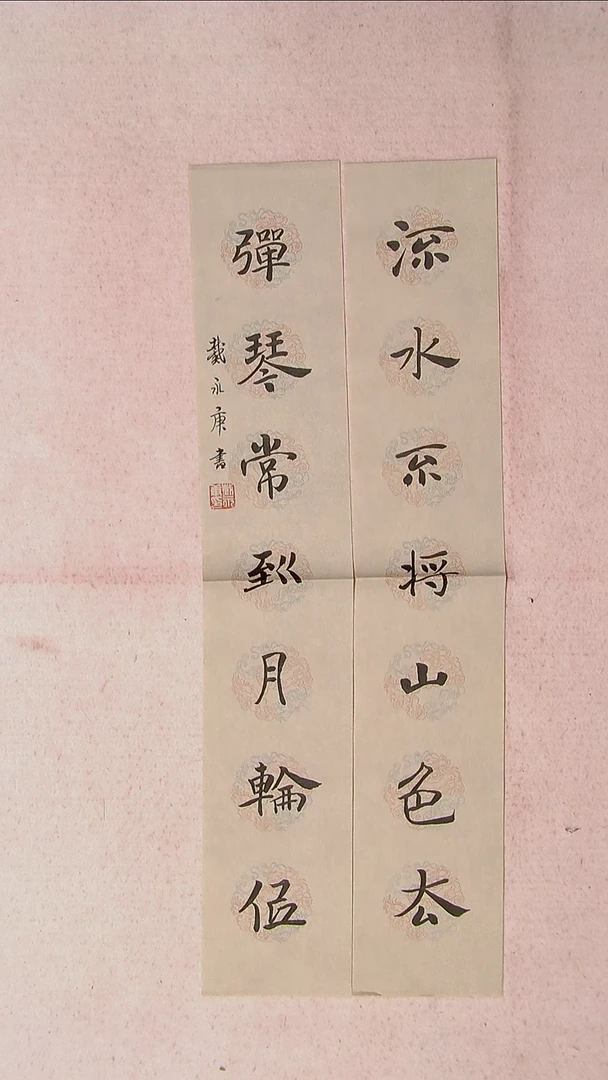 流水不将山色去
彈琴常到月輪低
戴永庚書